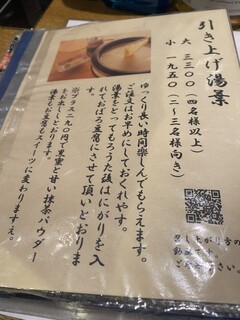 引き上げ湯葉
大 三三〇〇(四名様以上)
小 一九五〇(二～三名様向き)
ゆっくり長い時間楽しんでもらえます。
ご注文はお早めにしておくれやす。
湯葉をとってもろうた後はにがりを入
れておぼろ豆腐にさせて頂いどおりま
す。
※プラス二九〇円で黒蜜と甘い抹茶パウダー
をお出ししとおります。
湯葉もお豆腐もスイーツに変わりますえ。
召し上がり方の
動画です。
ご覧ください。